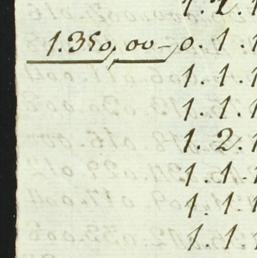 1.2.1
1.350,00-0.1.1
1.1.1
1.1.1
1.2.1
1.1.1
1.1.1
1.1.1